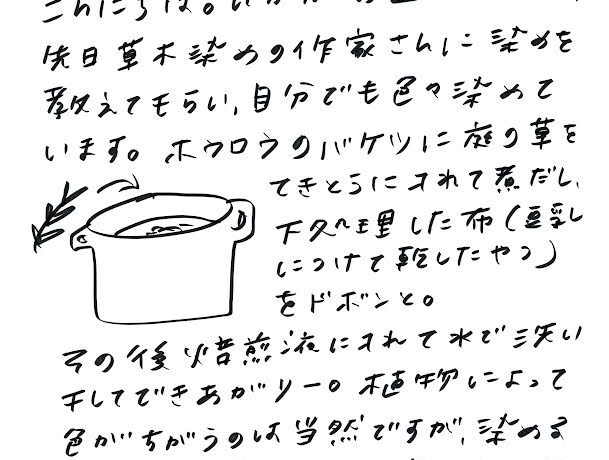 こんにちは。
先日草木染めの作家さんに染めを
教えてもらい、自分でも色々染めて
います。ホウロウのバケツに庭の草を
てきとうに入れて煮だし、
下処理した布（豆乳
につけて乾したやつ）
をドボンと。
その後焙煎液に入れて水で洗い
干してできあがりー。植物によって
色がちがうのは当然ですが、染める